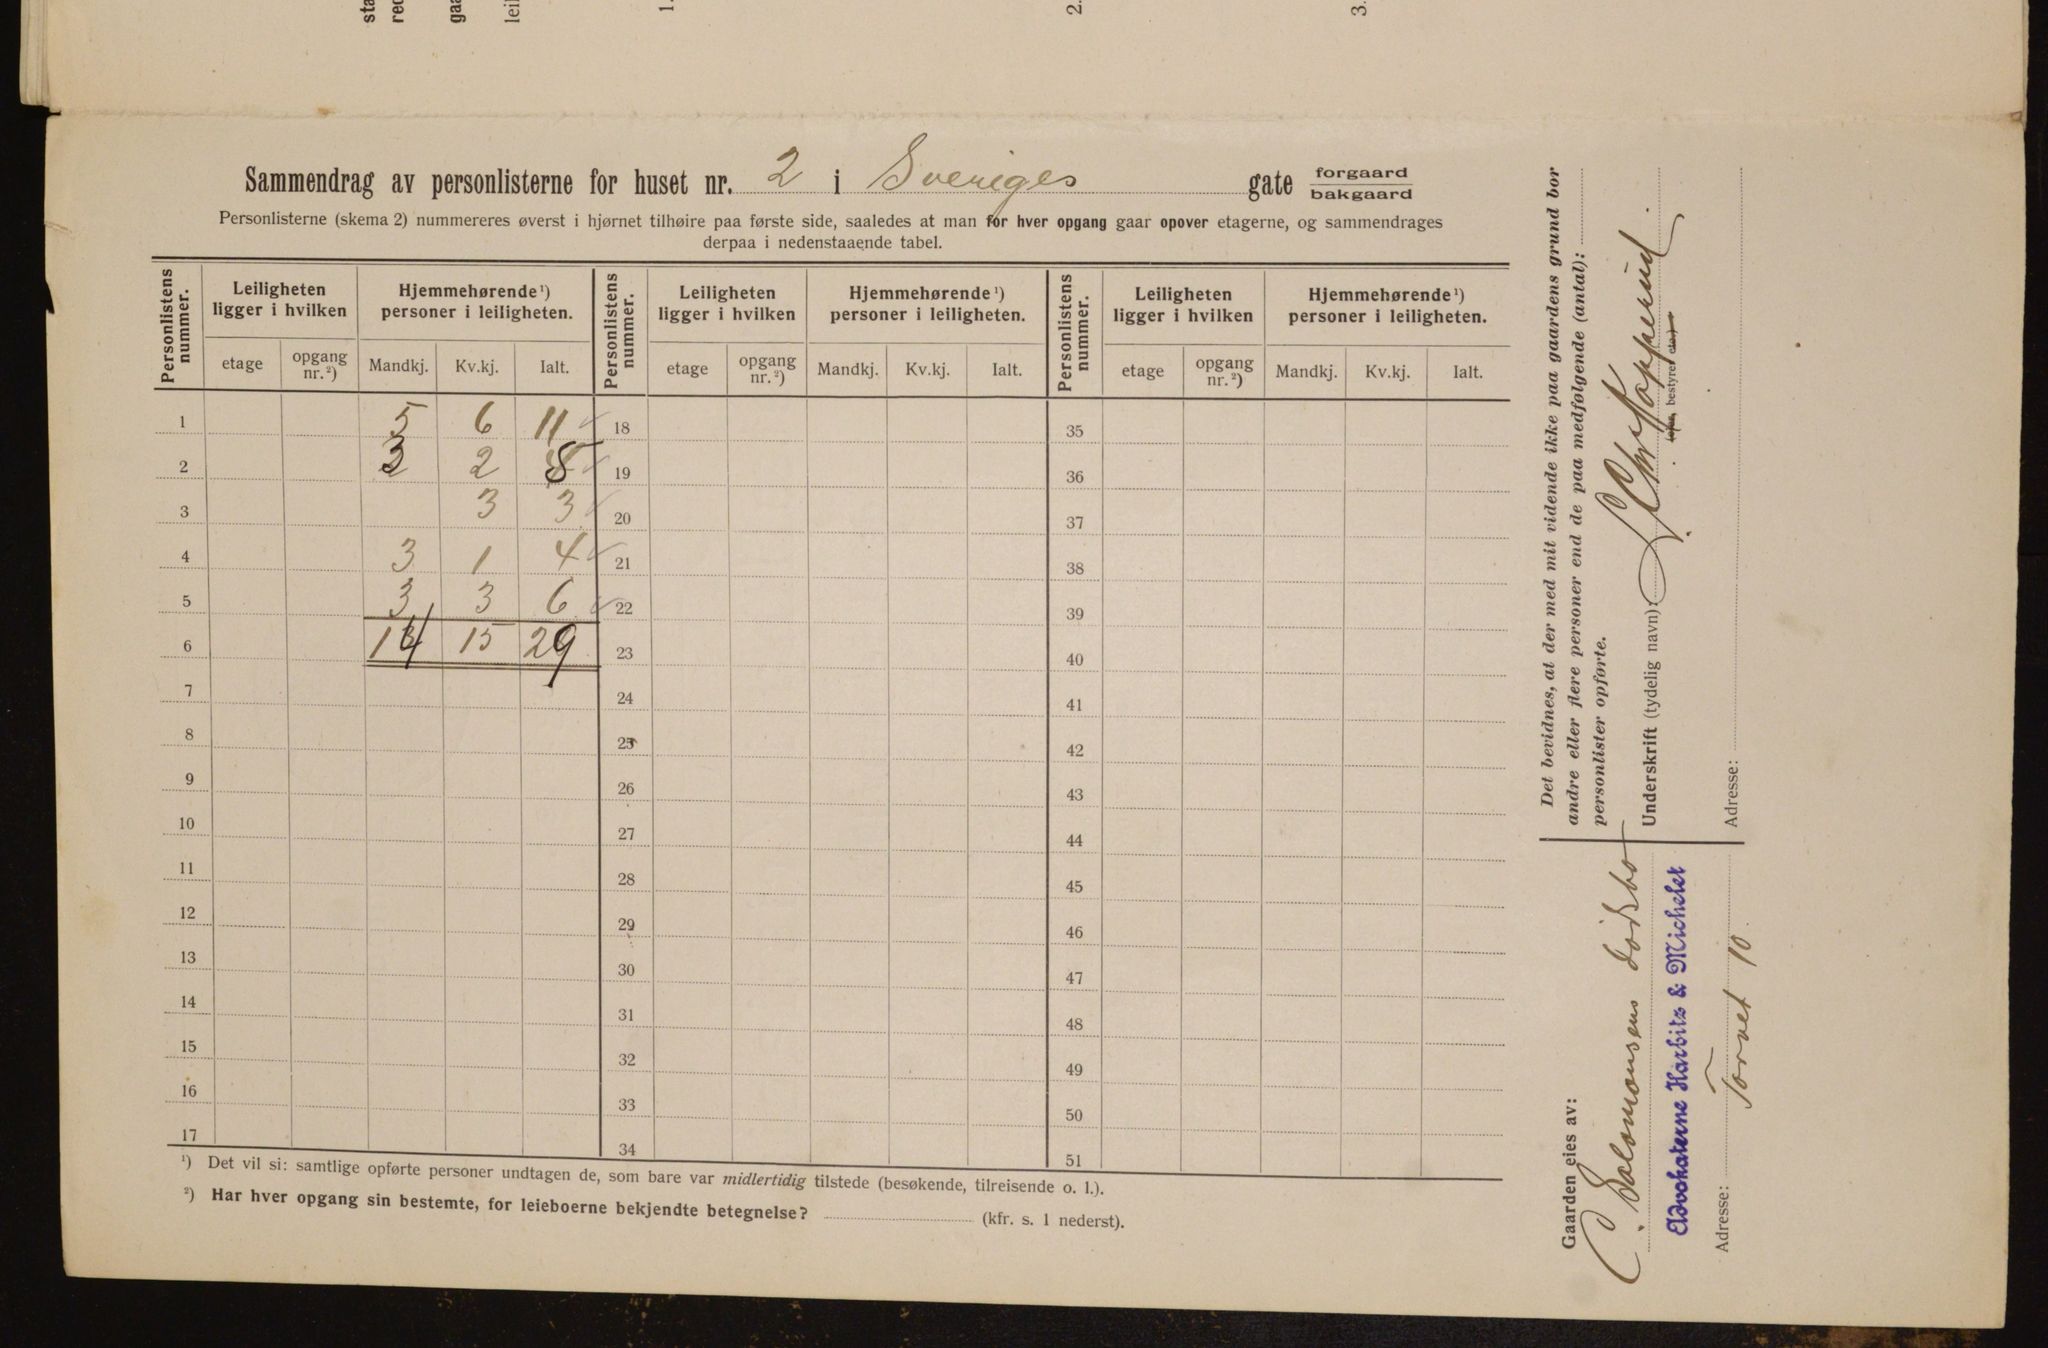 sta
red
gaa
leil
1.
2.
3.
Sammendrag av personlisterne for huset nr. 2 i Sveriges gate forgaard
bakgaard
Personlisterne (skema 2) nummereres øverst i hjørnet tilhøire paa første side, saaledes at man for hver opgang gaar opover etagerne, og sammendrages
derpaa i nedenstaaende tabel.
Personlistens nummer. Leiligheten ligger i hvilken Hjemmehørende ¹) personer i leiligheten. Personlistens nummer. Leiligheten ligger i hvilken Hjemmehørende ¹) personer i leiligheten. Personlistens nummer. Leiligheten ligger i hvilken Hjemmehørende ¹) personer i leiligheten.
etage opgang nr. ²) Mandkj. Kv.kj. Ialt. etage opgang nr. ²) Mandkj. Kv.kj. Ialt. etage opgang nr. ²) Mandkj. Kv.kj. Ialt.
1 5 6 11 18 35
2 3 2 5 19 36
3 3 3 20 37
4 3 1 4 21 38
5 3 3 6 22 39
6 14 15 29 23 40
7 24 41
8 25 42
9 26 43
10 27 44
11 28 45
12 29 46
13 30 47
14 31 48
15 32 49
16 33 50
17 34 51
¹) Det vil si: samtlige opførte personer undtagen de, som bare var midlertidig tilstede (besøkende, tilreisende o. l.).
²) Har hver opgang sin bestemte, for leieboerne bekjendte betegnelse? (kfr. s. 1 nederst).
Det bevidnes, at der med mit vidende ikke paa gaardens grund bor
andre eller flere personer end de paa medfølgende (antal):
personlister opførte.
Underskrift (tydelig navn): Chr. Kopperud
(eier, bestyrer etc.)
Adresse:
Gaarden eies av:
C. Salomonsens dødsbo
Advokaterne Harbitz & Michelet
Adresse: Torvet 10